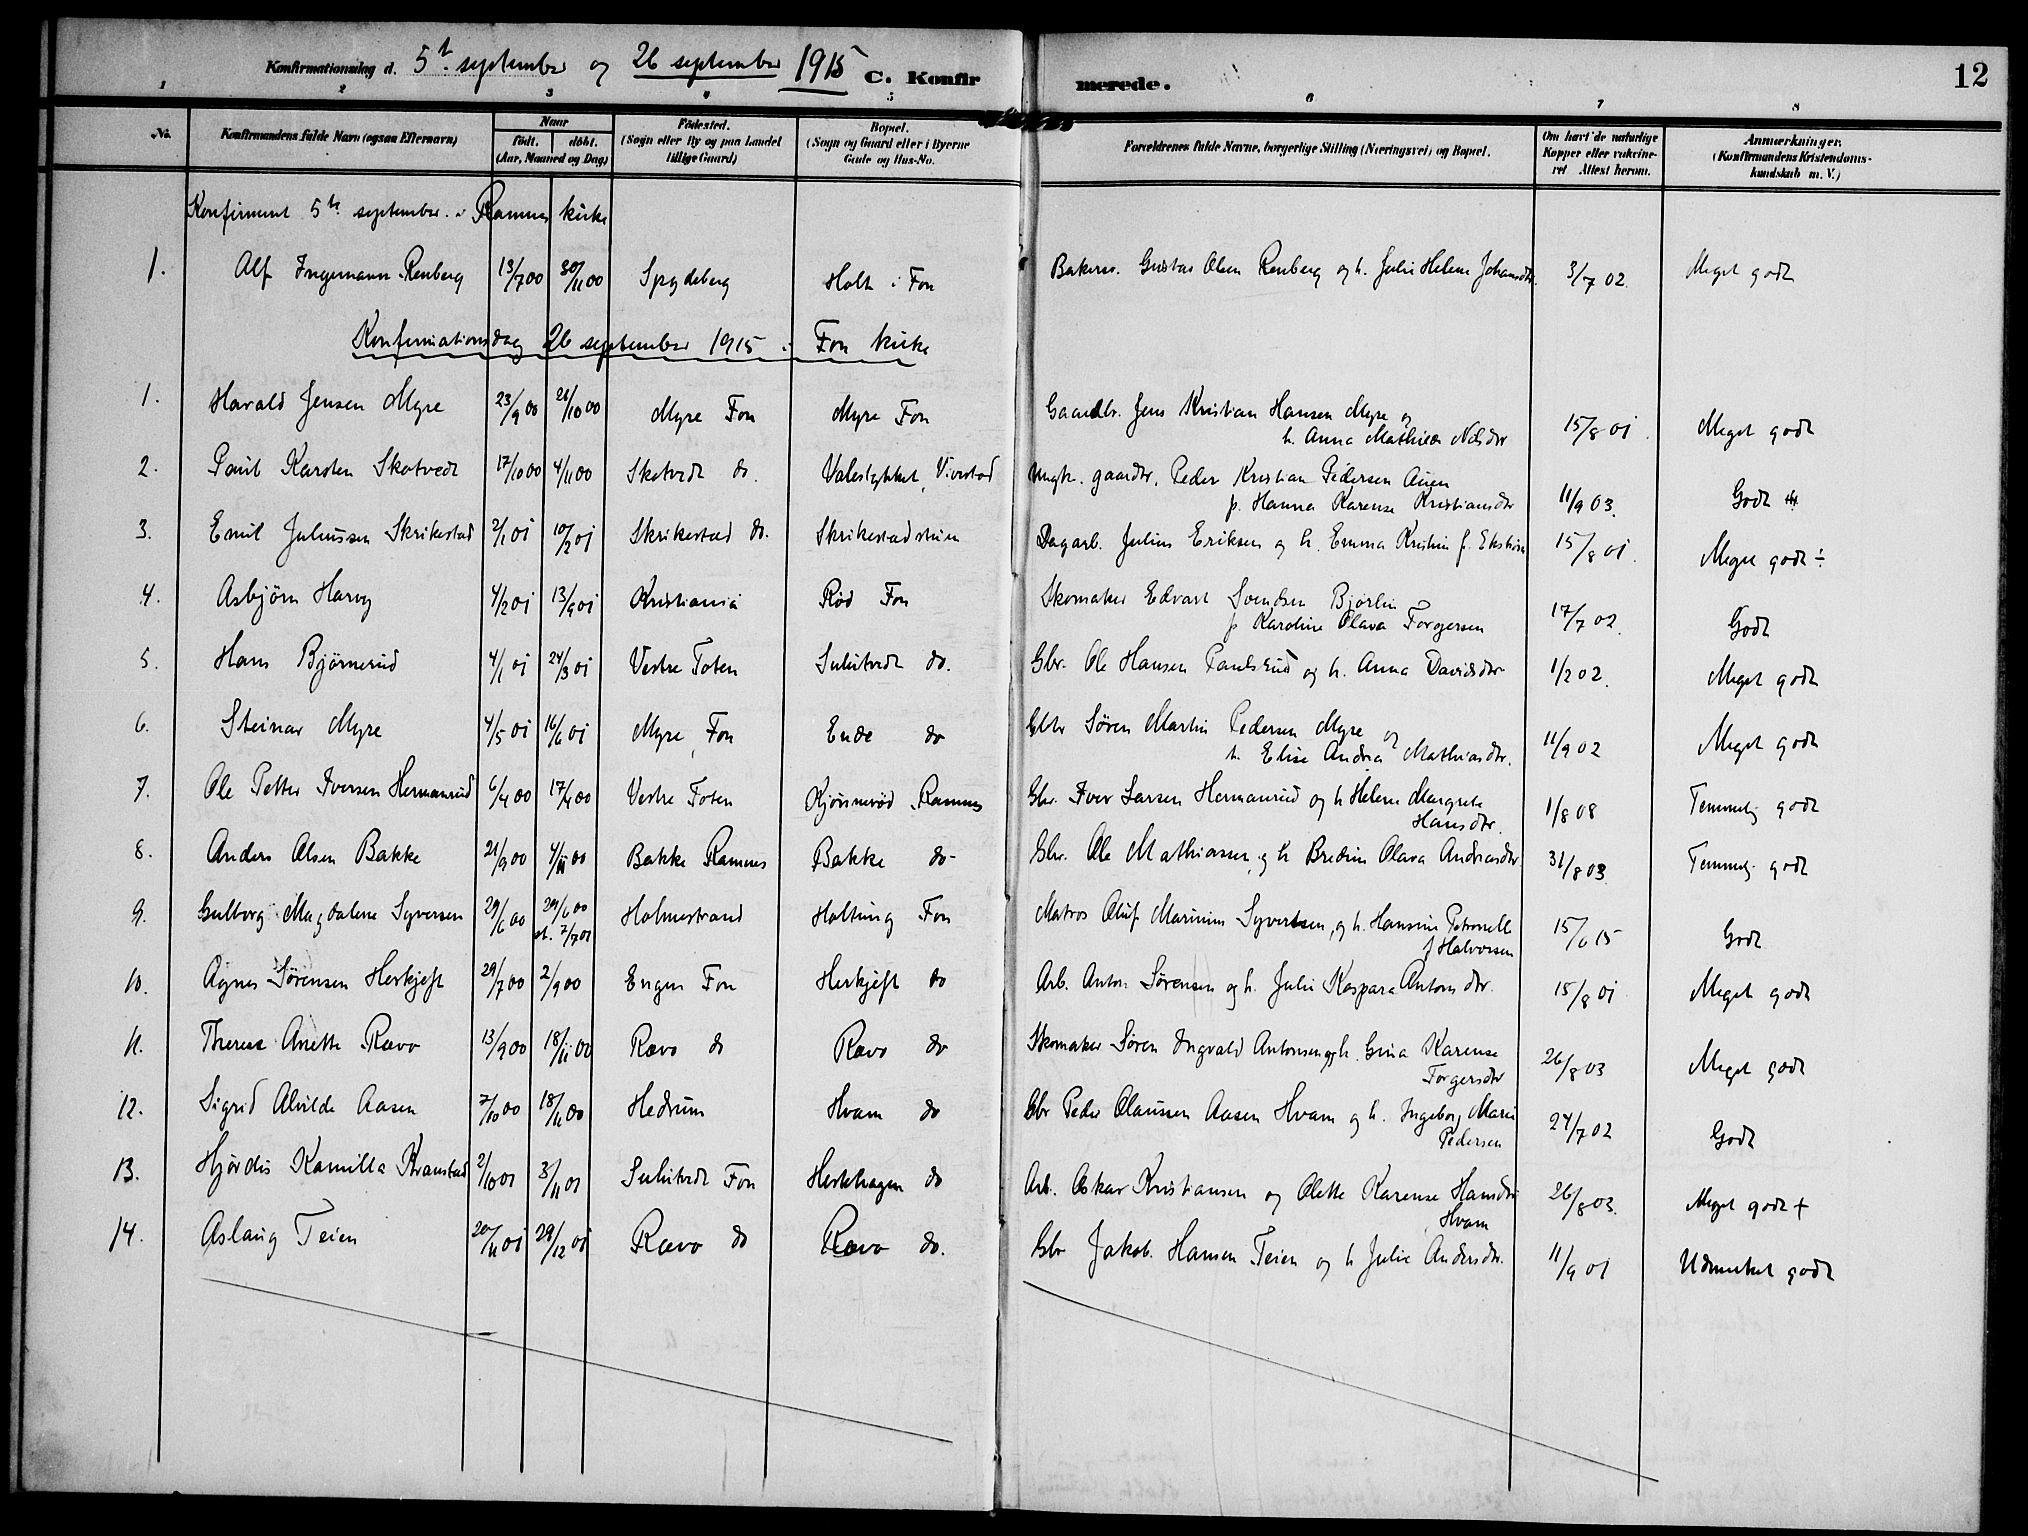 Konfirmationsdag d. 5t. september og 26 september 1915 C. Konfirmerede. 12
1 2 3 4 5 6 7 8
No. Konfirmandens fulde Navn (ogsaa Efternavn) Naar födt. döbt. (Aar, Maaned og Dag) Födested. (Sogn eller By og paa Landet tillige Gaard) Bopæl. (Sogn og Gaard eller i Byerne Gade og Hus-No. Forældrenes fulde Navne, borgerlige Stilling (Næringsvei) og Bopæl. Om havt de naturlige Kopper eller vakcineret Attest herom. Anmærkninger. (Konfirmandens Kristendomskundskab m. V.)
Konfirmert 5te september i Ramnes kirke
1. Alf Ingemann Renberg 13/7 00 30/11 00 Spydeberg Holt i Fon Bakerm. Gustav Olsen Renberg og h. Julie Helene Johansdtr. 3/7 02. Meget godt
Konfirmationsdag 26 september 1915 i Fon kirke
1. Harald Jensen Myre 23/9 00 26/10 00 Myre Fon Myre Fon Gaardbr. Jens Kristian Hansen Myre og
h. Anna Mathilde Nilsdtr 15/8 01. Meget godt
2. Paul Karsten Skotvedt 17/10 00 4/11 00 Skotvedt do. Valestykket, Vivestad Ungk. gaardbr. Peder Kristian Pedersen Auen
p. Hanna Karense Kristiansdtr 11/9 03. Godt
3. Emil Juliussen Skrikestad 2/1 01 10/2 01 Skrikestad do. Skrikestadstuen Dagarb. Julius Eriksen og h. Emma Kristin f. Ekström 15/8 01. Meget godt ÷
4. Asbjörn Harvy 4/2 01 13/9 01 Kristiania Röd Fon Skomaker Edvart Svendsen Björlin
p Karoline Olava Torgersen 17/7 02. Godt
5. Hans Björnerud 4/1 01 24/3 01 Vestre Toten Sulutvedt do. Gbr. Ole Hansen Paulsrud og h. Anna Davidsdtr 1/2 02. Meget godt
6. Steinar Myre 4/5 01 16/6 01 Myre, Fon Ende do Gbr Sören Martin Pedersen Myre og
h. Elise Andrea Mathiasdtr. 11/9 02 Meget godt
7. Ole Petter Iversen Hermanrud 6/4 00 17/4 00 Vestre Toten Kjönnerød, Ramnes Gbr. Iver Larsen Hermanrud og h Helene Margrete
Hansdtr. 1/8 08 Temmelig godt
8. Anders Olsen Bakke 21/9 00 4/11 00 Bakke Ramnes Bakke do Gbr. Ole Mathiassen og h Bredine Olava Andreasdtr 31/8 03 Temmelig godt
9. Gulborg Magdalene Syversen 29/6 00 29/6 00
st. 7/7 01 Holmestrand Holtung Fon Matros Oluf Marinius Syvertsen, og h. Hansine Petronelle
f Halvorsen 15/6 15 Godt
10. Agnes Sörensen Herkjeft 29/7 00 2/9 00 Engen Fon Herkjeft do Arb. Anton Sörensen og h. Julie Kaspara Antonsdtr. 15/8 01 Meget godt
11. Therese Anette Ravo 13/9 00 18/11 00 Ravo do Ravo do Skomaker Sören Ingvald Antonsen og h. Gina Karense
Torgersdtr 26/8 03 Meget godt
12. Sigrid Alvilde Aasen 7/10 00 18/11 00 Hedrum Hvam do Gbr Peder Olaussen Aasen Hvam og h. Ingeborg Marie
Pedersen 24/7 02 Godt
13. Hjördis Kamilla Kranstad 2/10 01 3/11 01 Sulutvedt Fon Herkhagen do Arb. Oskar Kristiansen og Olette Karense Hansdtr
Hvam 26/8 03. Meget godt +
14. Aslaug Teien 20/11 01 29/12 01 Ravo do Ravo do. Gbr Jakob Hansen Teien og h Julie Andersdtr. 11/9 01 Udmerket godt